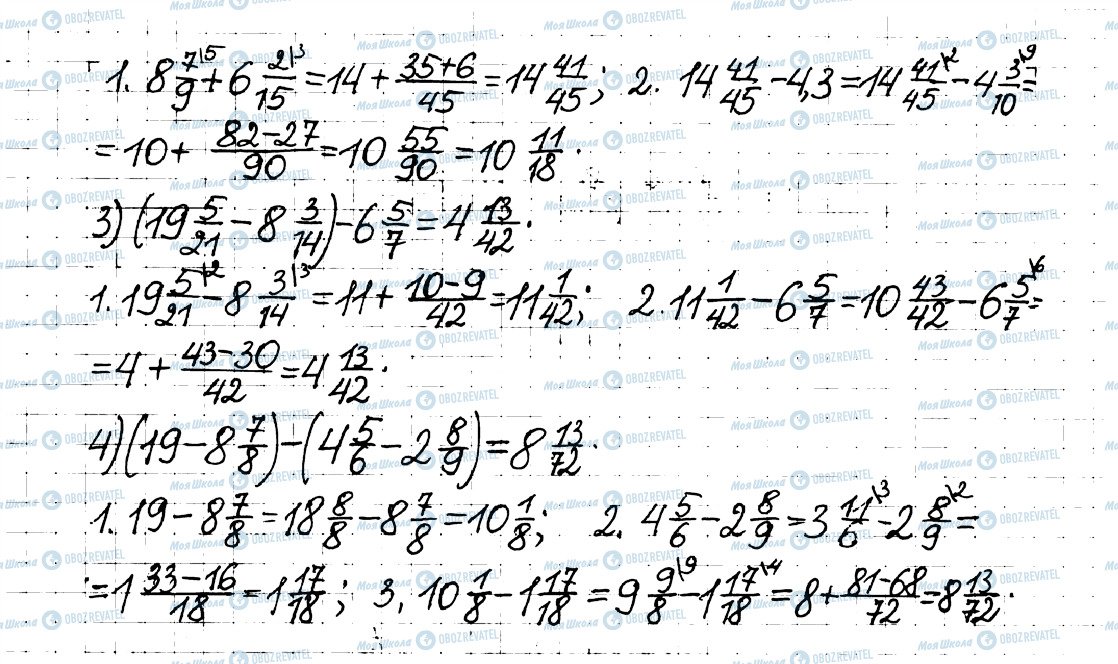 1. 8 7/9 |5 + 6 2/15 |3 = 14 + (35+6)/45 = 14 41/45; 2. 14 41/45 − 4,3 = 14 41/45 |2 − 4 3/10 |9 =
= 10 + (82−27)/90 = 10 55/90 = 10 11/18.
3) (19 5/21 − 8 3/14) − 6 5/7 = 4 13/42.
1. 19 5/21 |2 − 8 3/14 |3 = 11 + (10−9)/42 = 11 1/42; 2. 11 1/42 − 6 5/7 = 10 43/42 − 6 5/7 |6 =
= 4 + (43−30)/42 = 4 13/42.
4) (19 − 8 7/8) − (4 5/6 − 2 8/9) = 8 13/72.
1. 19 − 8 7/8 = 18 8/8 − 8 7/8 = 10 1/8; 2. 4 5/6 − 2 8/9 = 3 11/6 |3 − 2 8/9 |2 =
= 1 (33−16)/18 = 1 17/18; 3. 10 1/8 − 1 17/18 = 9 9/8 |9 − 1 17/18 |4 = 8 + (81−68)/72 = 8 13/72.
Моя Школа OBOZREVATEL